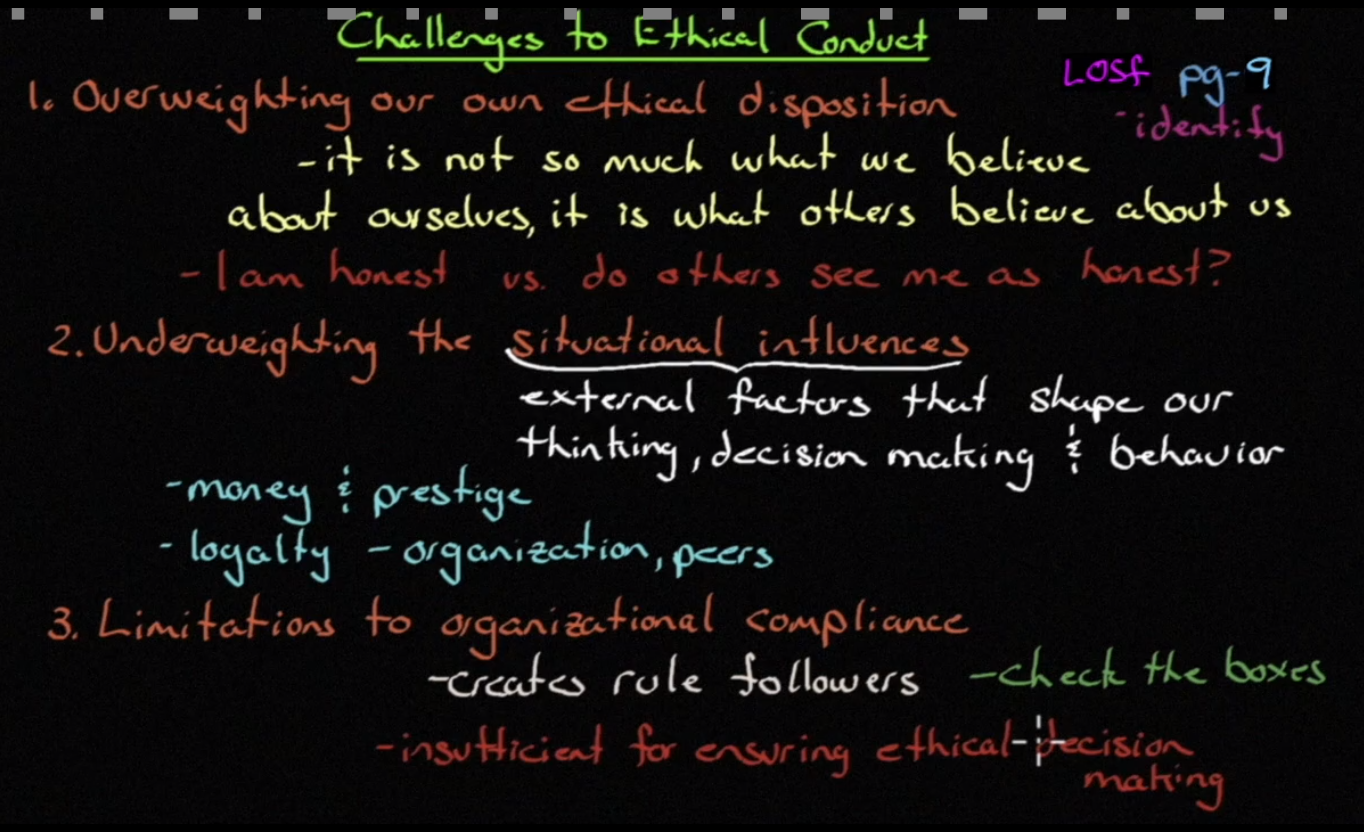 Challenges to Ethical Conduct
LOSf pg-9
1. Overweighting our own ethical disposition
-identify
-it is not so much what we believe
about ourselves, it is what others believe about us
- I am honest vs. do others see me as honest?
2. Underweighting the situational influences
external factors that shape our
thinking, decision making & behavior
-money & prestige
- loyalty - organization, peers
3. Limitations to organizational compliance
-creates rule followers -check the boxes
-insufficient for ensuring ethical-decision
making